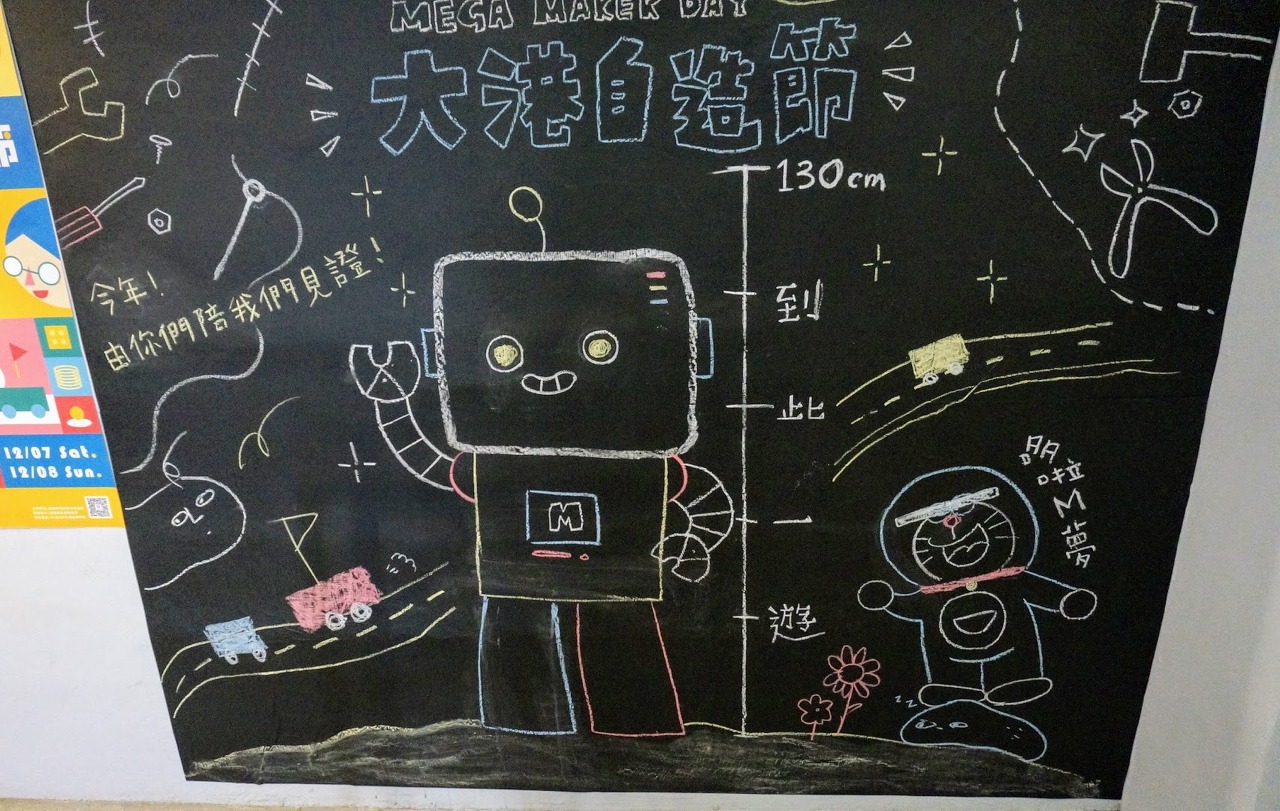 MEGA MAKER DAY
大港自造節
130cm
今年！
由你們陪我們見證！
到
此
一
遊
M
哆
啦
M
夢
z z
12/07 Sat.
12/08 Sun.
節